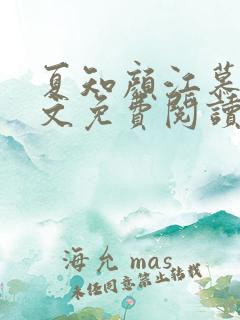 夏知顏江慕
文免費閱讀
海允 mas
未任同意禁止转载